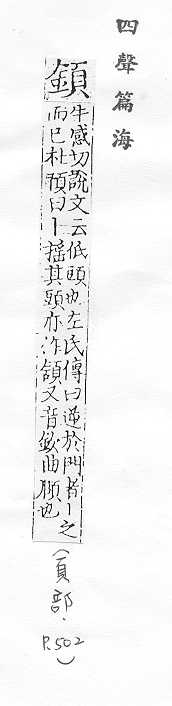 四聲篇海
顉
牛感切說文云低頭也左氏傳曰逆於門者丨之
而已杜預曰丨搖其頭亦作頷又音欽曲頤也
(頁部.
P.502)